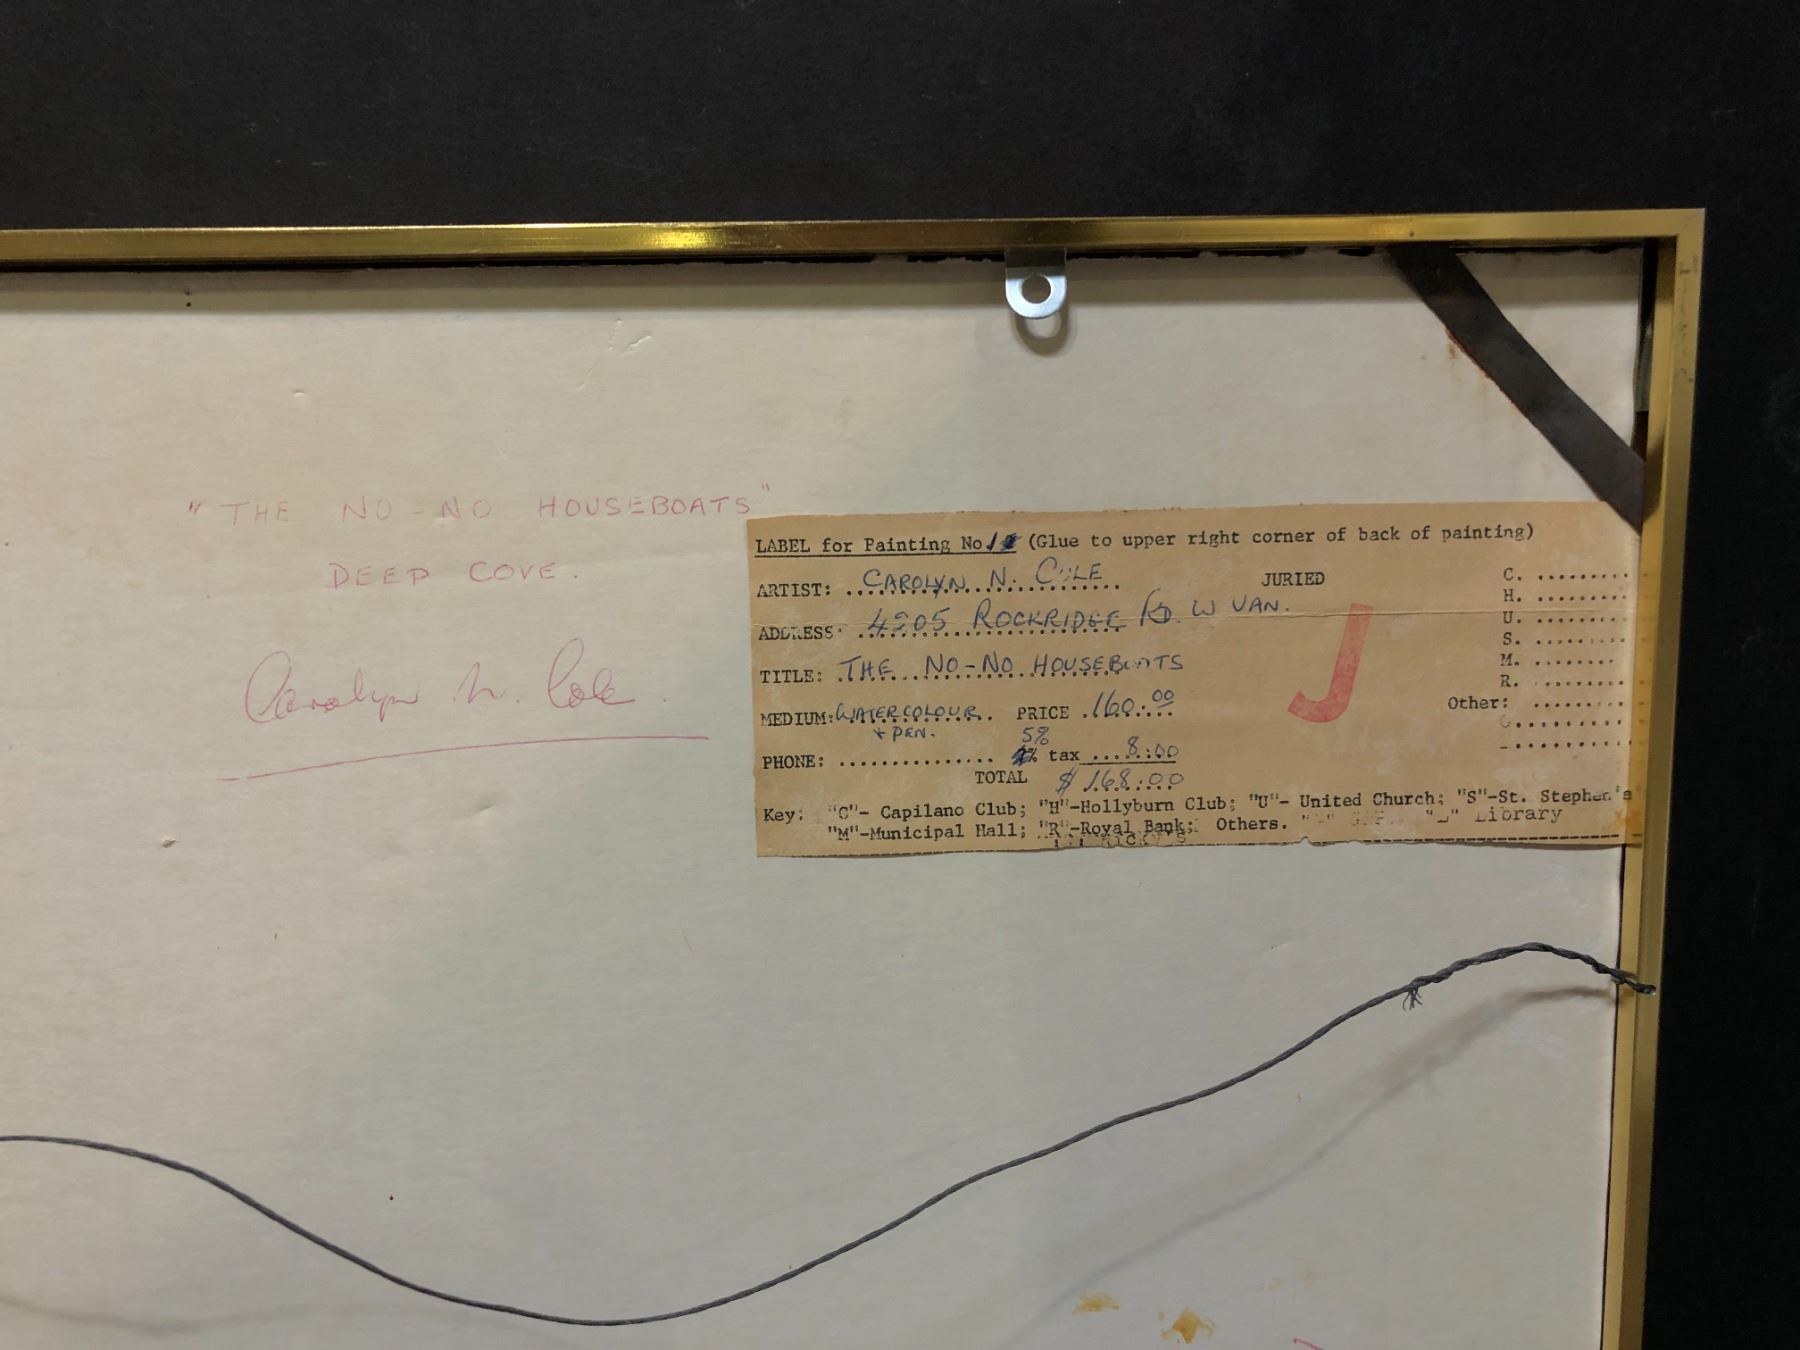 "THE NO-NO HOUSEBOATS"
DEEP COVE.
Carolyn N. Cole.
LABEL for Painting No. 1 (Glue to upper right corner of back of painting)
ARTIST: CAROLYN N. COLE
JURIED
ADDRESS: 4205 ROCKRIDGE RD. W VAN.
TITLE: THE NO-NO HOUSEBOATS
MEDIUM: WATERCOLOUR PRICE 160.00
+ PEN. 5%
PHONE: % tax 8:00
TOTAL $168:00
J
C.
H.
U.
S.
M.
R.
Other:
Key: "C"- Capilano Club; "H"-Hollyburn Club; "U"- United Church; "S"-St. Stephen's
"M"-Municipal Hall; "R"-Royal Bank; Others. "L" Library